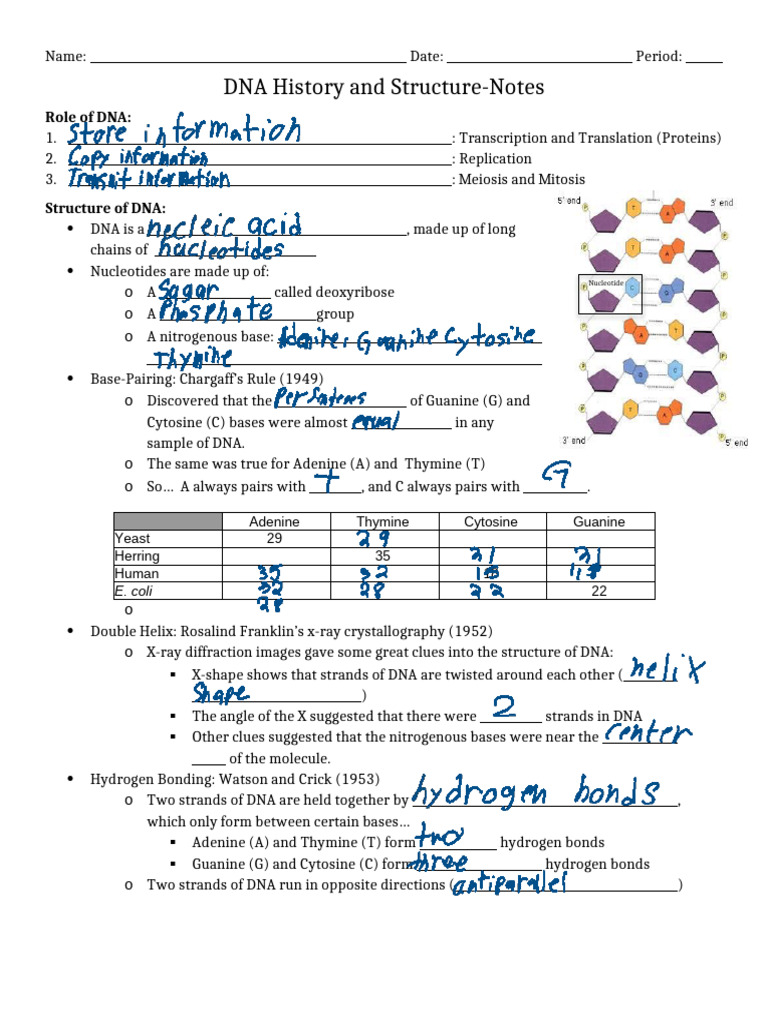 Name: ______ Date: ______ Period: ______
DNA History and Structure-Notes
Role of DNA:
1. Store information : Transcription and Translation (Proteins)
2. Copy information : Replication
3. Transmit information : Meiosis and Mitosis
Structure of DNA:
• DNA is a necleic acid, made up of long
chains of nucleotides
• Nucleotides are made up of:
o A Sagar called deoxyribose
o A Phosphate group
o A nitrogenous base: Adenine, Guanine Cytosine
Thymine
5' end
3' end
P
T
A
Nucleotide
C
G
3' end
5' end
• Base-Pairing: Chargaff's Rule (1949)
o Discovered that the of Guanine (G) and
Cytosine (C) bases were almost equal in any
sample of DNA.
o The same was true for Adenine (A) and Thymine (T)
o So… A always pairs with T, and C always pairs with G.
Adenine Thymine Cytosine Guanine
Yeast 29 29
Herring 35 21 21
Human 35 32
E. coli 32 28 22 22
o 28
• Double Helix: Rosalind Franklin's x-ray crystallography (1952)
o X-ray diffraction images gave some great clues into the structure of DNA:
▪ X-shape shows that strands of DNA are twisted around each other (helix
Shape)
▪ The angle of the X suggested that there were 2 strands in DNA
▪ Other clues suggested that the nitrogenous bases were near the center
of the molecule.
• Hydrogen Bonding: Watson and Crick (1953)
o Two strands of DNA are held together by hydrogen bonds,
which only form between certain bases…
▪ Adenine (A) and Thymine (T) form two hydrogen bonds
▪ Guanine (G) and Cytosine (C) form three hydrogen bonds
o Two strands of DNA run in opposite directions (antiparalel)